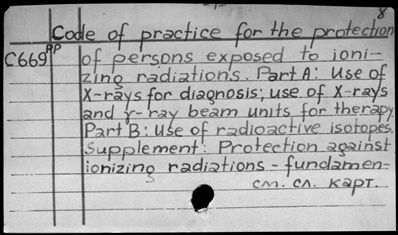 8
Code of practice for the protection
C669 PP of persons exposed to ioni-
zing radiations. Part A: Use of
X-rays for diagnosis; use of X-rays
and γ-ray beam units for therapy.
Part B: Use of radioactive isotopes.
Supplement: Protection against
ionizing radiations - fundamen-
см. сл. карт.